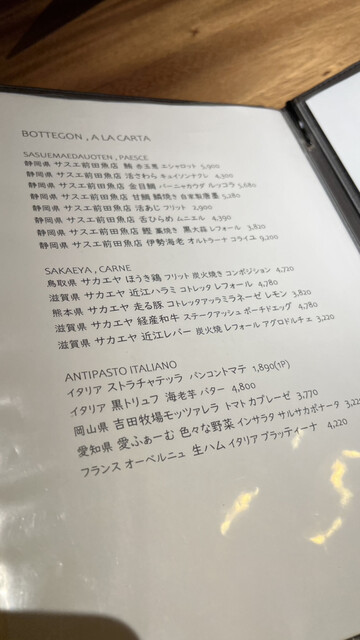 BOTTEGON , A LA CARTA
SASUEMAEDAUOTEN , PAESCE
静岡県 サスエ前田魚店 鮪 赤玉葱 エシャロット 5,900
静岡県 サスエ前田魚店 活さわら キュイソンナクレ 4,300
静岡県 サスエ前田魚店 金目鯛 バーニャカウダ ルッコラ 5,680
静岡県 サスエ前田魚店 甘鯛 鱗焼き 自家製唐墨 5,280
静岡県 サスエ前田魚店 活あじ フリット 2,900
静岡県 サスエ前田魚店 舌ひらめ ムニエル 4,390
静岡県 サスエ前田魚店 鰹 藁焼き 黒大蒜 レフォール 3,820
静岡県 サスエ前田魚店 伊勢海老 オルトラーナ コライユ 9,200
SAKAEYA , CARNE
鳥取県 サカエヤ ほうき鶏 フリット 炭火焼き コンポジション 4,720
滋賀県 サカエヤ 近江ハラミ コトレッタ レフォール 4,780
熊本県 サカエヤ 走る豚 コトレッタアッラミラネーゼ レモン 3,820
滋賀県 サカエヤ 経産和牛 ステークアッシュ ポーチドエッグ 4,780
滋賀県 サカエヤ 近江レバー 炭火焼 レフォール アグロドルチェ 3,220
ANTIPASTO ITALIANO
イタリア ストラチャテッラ パンコントマテ 1,890(1P)
イタリア 黒トリュフ 海老芋 バター 4,800
岡山県 吉田牧場モッツァレラ トマト カプレーゼ 3,770
愛知県 愛ふぁーむ 色々な野菜 インサラタ サルサカポナータ 3,220
フランス オーベルニュ 生ハム イタリア ブラッティーナ 4,220